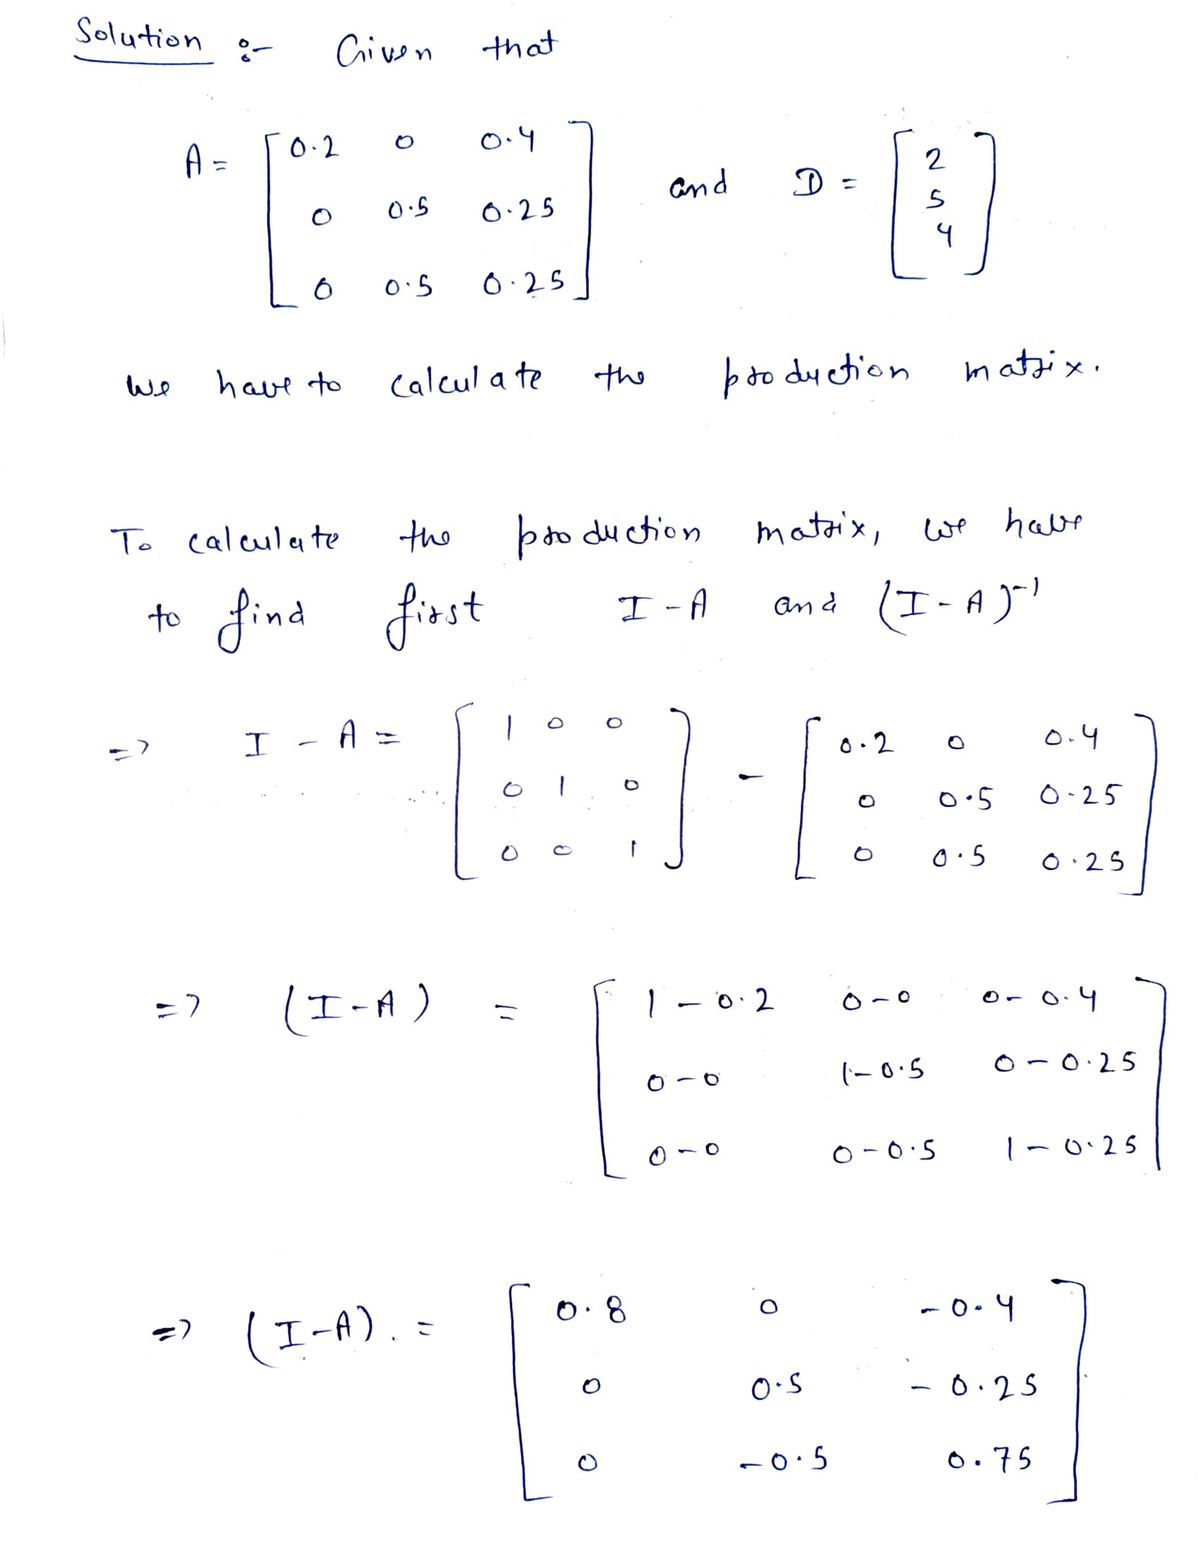 Solution :- Given that
A = [ 0.2 0 0.4
0 0.5 0.25
0 0.5 0.25 ] and D = [ 2
5
4 ]
We have to calculate the production matrix.
To calculate the production matrix, we have
to find first I - A and (I - A)⁻¹
=> I - A = [ 1 0 0
0 1 0
0 0 1 ] - [ 0.2 0 0.4
0 0.5 0.25
0 0.5 0.25 ]
=> (I-A) = [ 1-0.2 0-0 0-0.4
0-0 1-0.5 0-0.25
0-0 0-0.5 1-0.25 ]
=> (I-A) = [ 0.8 0 -0.4
0 0.5 -0.25
0 -0.5 0.75 ]